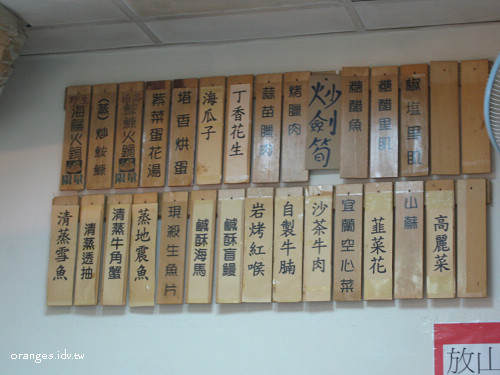 椒塩里肌
糖醋里肌
糖醋魚
炒劍筍
烤臘肉
蒜苗臘肉
丁香花生
海瓜子
塔香烘蛋
紫菜蛋花湯
火鍋 限量
(蒸)炒鮟鱇
火鍋 限量
高麗菜
山蘇
韮菜花
宜蘭空心菜
沙茶牛肉
自製牛腩
岩烤紅喉
鹹酥盲鰻
鹹酥海馬
現殺生魚片
蒸地震魚
清蒸牛角蟹
清蒸透抽
清蒸雪魚
放山
oranges.idv.tw